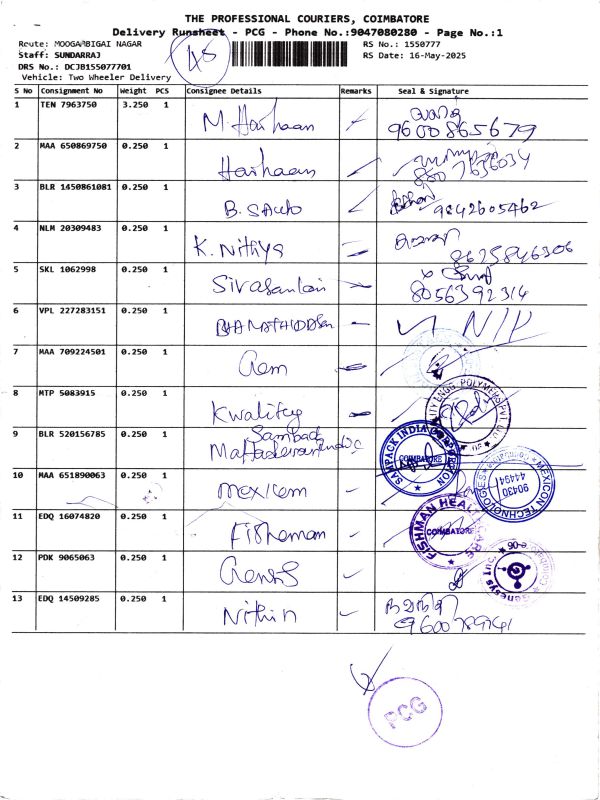 THE PROFESSIONAL COURIERS, COIMBATORE
Delivery Runsheet - PCG - Phone No.:9047080280 - Page No.:1
Route: MOOGAMBIGAI NAGAR
RS No.: 1550777
Staff: SUNDARRAJ
RS Date: 16-May-2025
DRS No.: DCJB155077701
Vehicle: Two Wheeler Delivery
48
S No Consignment No Weight PCS Consignee Details Remarks Seal & Signature
1 TEN 7963750 3.250 1 M. Harihaan 9600865679
2 MAA 650869750 0.250 1 Harihaan
3 BLR 1450861081 0.250 1 B. 9842605462
4 NLM 20309483 0.250 1 K. Nithya 8625846306
5 SKL 1062998 0.250 1 8056392314
6 VPL 227283151 0.250 1
7 MAA 709224501 0.250 1 Gem
8 MTP 5083915 0.250 1 Kwality
ENGG. POLYMERS (P) LTD
9 BLR 520156785 0.250 1
SANPACK INDIA CORPORATION
COIMBATORE
10 MAA 651890063 0.250 1 Mexicon
MEXICON TECHNOLOGIES
90430 44494
11 EDQ 16074820 0.250 1 Fisheman
FISHMAN HEALTHCARE
COIMBATORE
12 PDK 9065063 0.250 1
Genesys Inc.
13 EDQ 14509285 0.250 1 Nithin
PCG